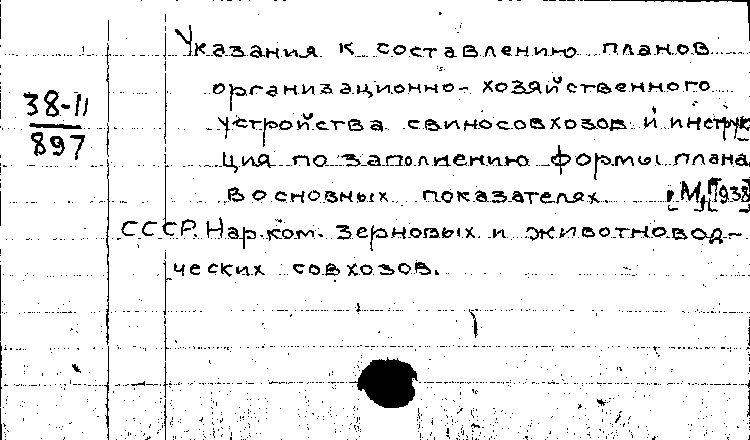 Указания к составлению планов
организационно-хозяйственного
38-11
устройства свиносовхозов и инструк
897
ция по заполнению формы плана
в основных показателях. М, [1938
СССР. Нар.ком. зерновых и животновод-
ческих совхозов.